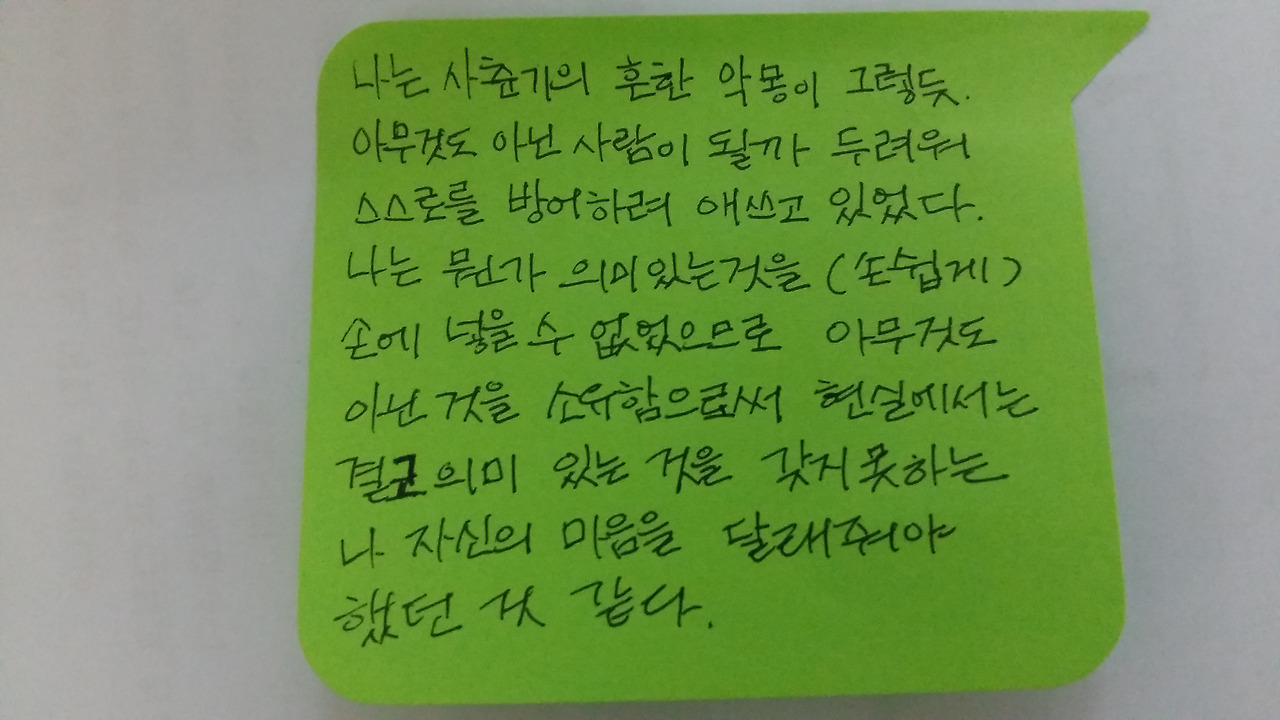 나는 사춘기의 흔한 악몽이 그렇듯.
아무것도 아닌 사람이 될까 두려워
스스로를 방어하려 애쓰고 있었다.
나는 뭔가 의미있는것을 (손쉽게)
손에 넣을 수 없었으므로 아무것도
아닌 것을 소유함으로써 현실에서는
결코 의미 있는 것을 갖지못하는
나 자신의 마음을 달래줘야
했던 것 같다.